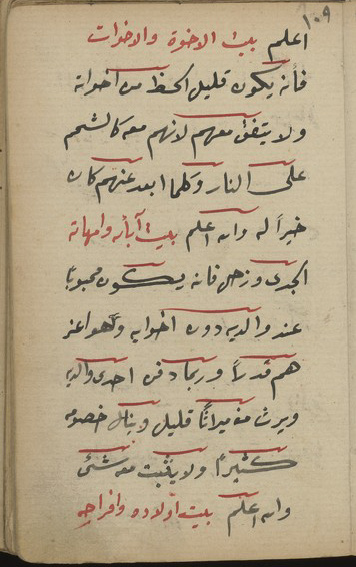 ١٠٩
اعلم بيت الاخوة والاخوات
فأنه يكون قليل الحظ من اخواته
ولا يتفق معهم لانهم معه كالشحم
على النار وكلما ابعد عنهم كان
خيراً له والله اعلم بيت آبائه وامهاته
الجدى وزحل فانه يكون محبوبًا
عند والديه دون اخوانه وهو اعز
هم قدراً وربما دفن احدى والديه
ويرث منه ميراثًا قليل وينال خصومه
كثيرًا ولا يثبت معه شئ
والله اعلم بيت اولاده وافراحه